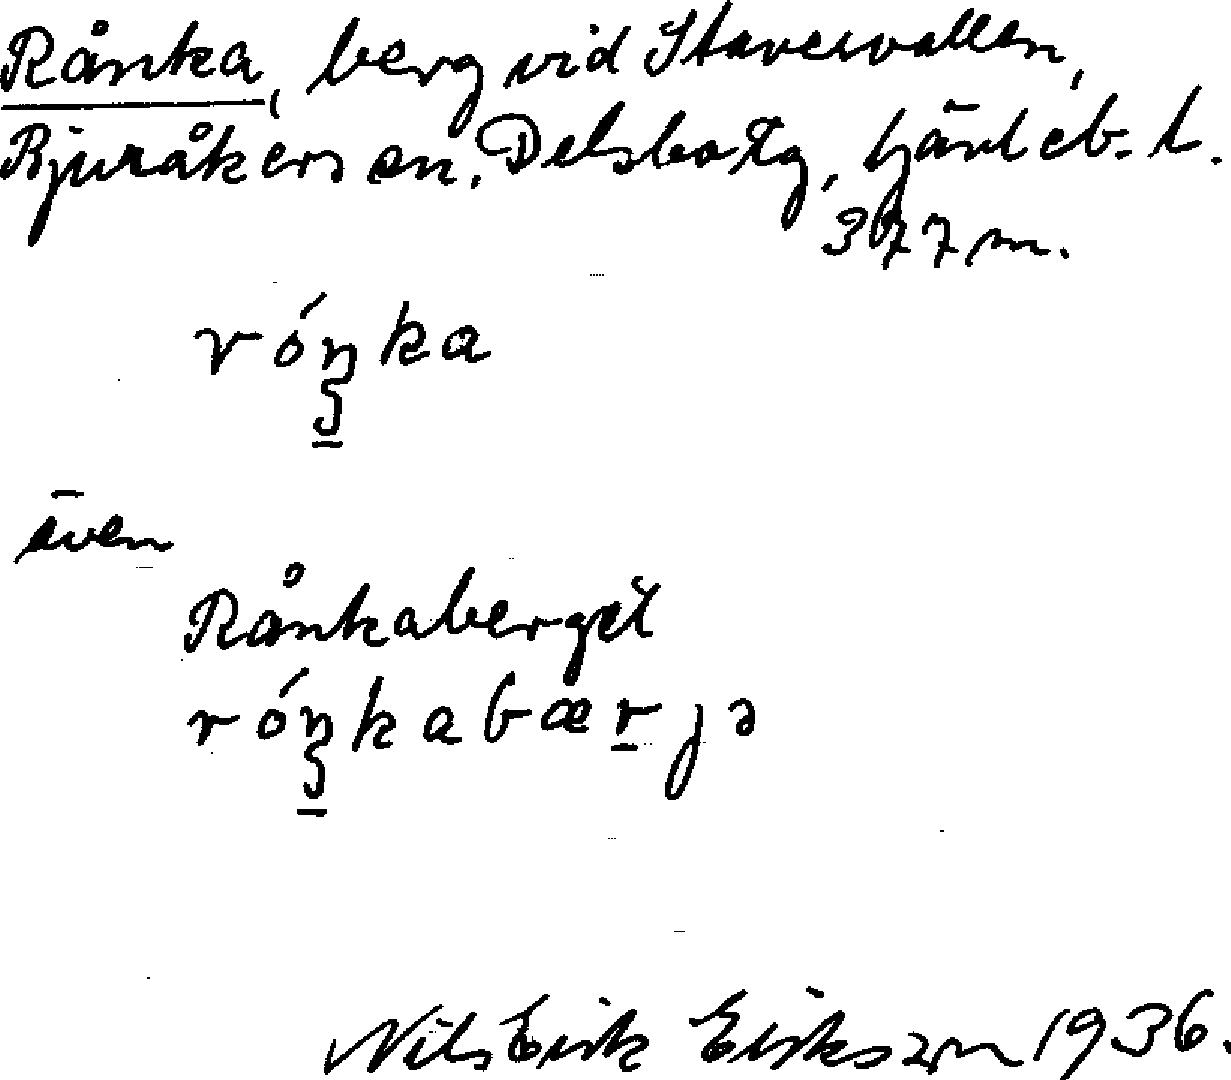 Rånka, berg vid Stavervallen,
Bjuråkers sn. Delsbo tg, Gävleb. l.
377 m.
rón̡ka
även
Rånkaberget
rón̡kabærjə
Nils Erik Eriksson 1936.